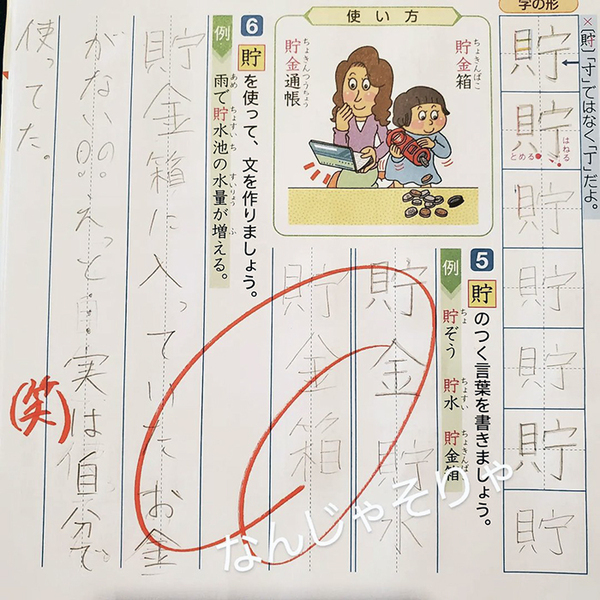 字の形
×
[貯]「寸」ではなく「丁」だよ。
貯
貯
とめる
はねる
貯
貯
貯
貯
貯
使い方
貯金箱
ちょきんばこ
貯金通帳
ちょきんつうちょう
5
貯のつく言葉を書きましょう。
例
貯ぞう 貯水 貯金箱
ちょ ちょすい ちょきんば
貯金 貯水
貯金箱
6
貯を使って、文を作りましょう。
例
雨で貯水池の水量が増える。
あめ ちょすいち すいりょう ふ
貯金箱に入っていたお金
がない!?!? えっと 実は自分で
使ってた。
(笑)
なんじゃそりゃ